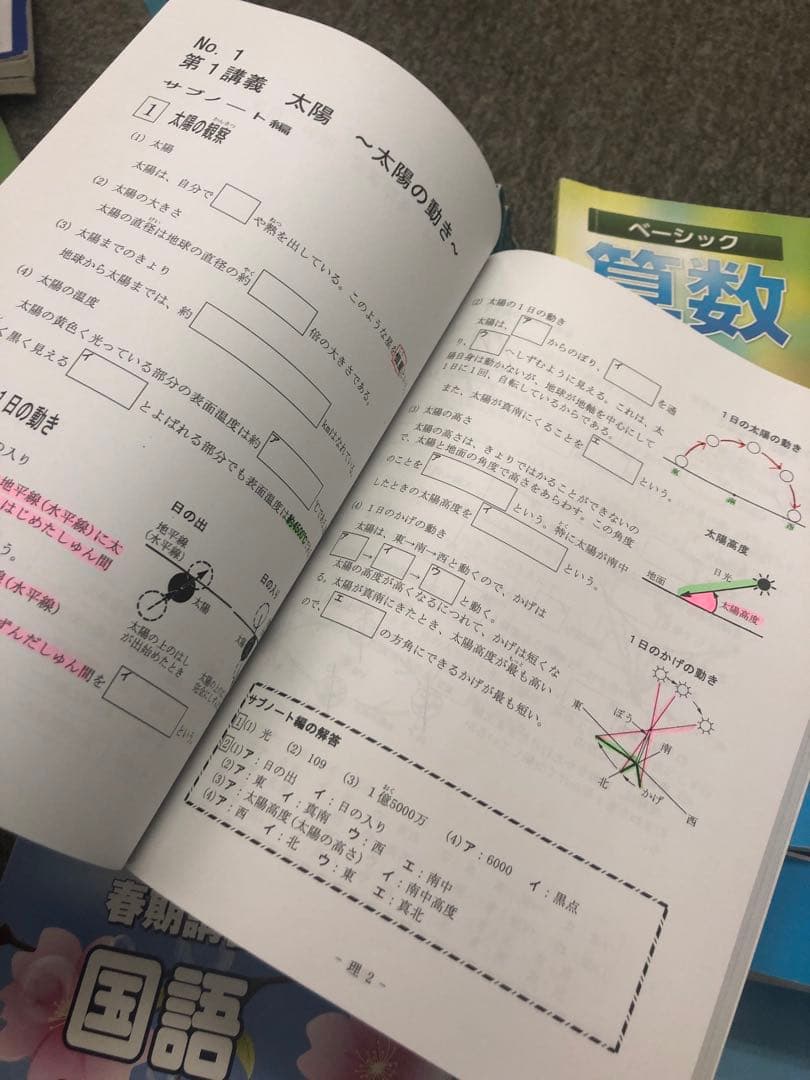 No. 1
第1講義 太陽 ～太陽の動き～
サブノート編
1 太陽の観察
かんさつ
(1) 太陽
太陽は、自分で や熱を出している。このような星を
ねつ
(2) 太陽の大きさ
太陽の直径は地球の直径の約 倍の大きさである。
けい
やく
(3) 太陽までのきょり
地球から太陽までは、約 kmはなれている。
(4) 太陽の温度
太陽の黄色く光っている部分の表面温度は約 ア
く黒く見える イ とよばれる部分でも表面温度は
1日の動き
の入り
地平線(水平線)に太
はじめたしゅん間
う。
線(水平線)
ずんだしゅん間を イ という。
日の出
地平線
(水平線)
太陽
太陽の上のはし
が出始めたとき
日の入り
太陽
(2) 太陽の1日の動き
太陽は、 ア からのぼり、 イ を通
り、 ウ へしずむように見える。これは、太
陽自身は動かないが、地球が地軸を中心にして
1日に1回、自転しているからである。
また、太陽が真南にくることを エ という。
(3) 太陽の高さ
太陽の高さは、きょりではかることができないの
で、太陽と地面の角度で高さをあらわす。この角度
のことを ア という。特に太陽が南中
とく
したときの太陽高度を イ という。
(4) 1日のかげの動き
太陽は、東→南→西と動くので、かげは
ア → イ → ウ と動く。
太陽の高度が高くなるにつれて、かげは短くな
る。太陽が真南にきたとき、太陽高度が最も高い
もっと
ので、 エ の方角にできるかげが最も短い。
1日の太陽の動き
東
南
西
太陽高度
日光
地面
太陽高度
1日のかげの動き
東
ぼう
南
北
かげ
西
サブノート編の解答
1 (1) 光 (2) 109 (3) 1億5000万 (4) ア：6000 イ：黒点
おく
2 (1) ア：日の出 イ：日の入り
(2) ア：東 イ：真南 ウ：西 エ：南中
(3) ア：太陽高度(太陽の高さ) イ：南中高度
(4) ア：西 イ：北 ウ：東 エ：真北
- 理 2 -
ベーシック
算数
春期講
国語